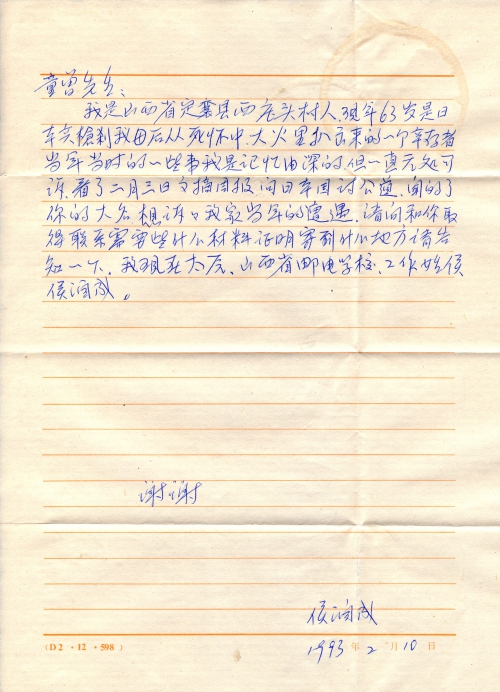 童曾先生:
我是山西省定襄县西庄头村人,现年63岁是日
军实枪刺我母后从死怀中,大火里扒出来的一个幸存者
当年当时的一些事我是记忆由深的,但一直无处可
诉,看了二月三日文摘周报向日本国讨公道,闻的了
你的大名想诉诉我家当年的遭遇,请问和你取
得联系需要些什么材料证明寄到什么地方请告
知一下,我现在太原、山西省邮电学校、工作姓侯
侯润成。
谢谢
侯润成
(D2·12·598) 1993年2月10日